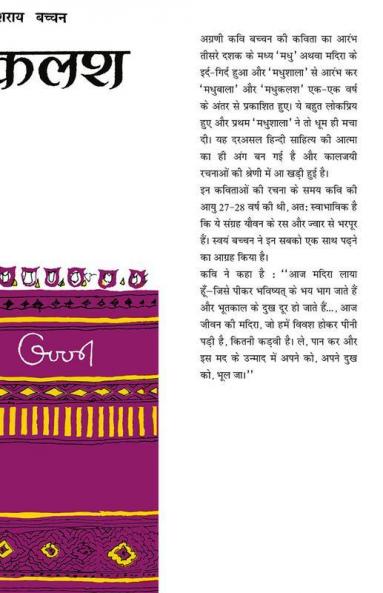 शराय बच्चन
कलश
अग्रणी कवि बच्चन की कविता का आरंभ
तीसरे दशक के मध्य 'मधु' अथवा मदिरा के
इर्द-गिर्द हुआ और 'मधुशाला' से आरंभ कर
'मधुबाला' और 'मधुकलश' एक-एक वर्ष
के अंतर से प्रकाशित हुए। ये बहुत लोकप्रिय
हुए और प्रथम 'मधुशाला' ने तो धूम ही मचा
दी। यह दरअसल हिन्दी साहित्य की आत्मा
का ही अंग बन गई है और कालजयी
रचनाओं की श्रेणी में आ खड़ी हुई है।
इन कविताओं की रचना के समय कवि की
आयु 27-28 वर्ष की थी, अत: स्वाभाविक है
कि ये संग्रह यौवन के रस और ज्वार से भरपूर
हैं। स्वयं बच्चन ने इन सबको एक साथ पढ़ने
का आग्रह किया है।
कवि ने कहा है : ''आज मदिरा लाया
हूँ-जिसे पीकर भविष्यत् के भय भाग जाते हैं
और भूतकाल के दुख दूर हो जाते हैं..., आज
जीवन की मदिरा, जो हमें विवश होकर पीनी
पड़ी है, कितनी कड़वी है। ले, पान कर और
इस मद के उन्माद में अपने को, अपने दुख
को, भूल जा।''